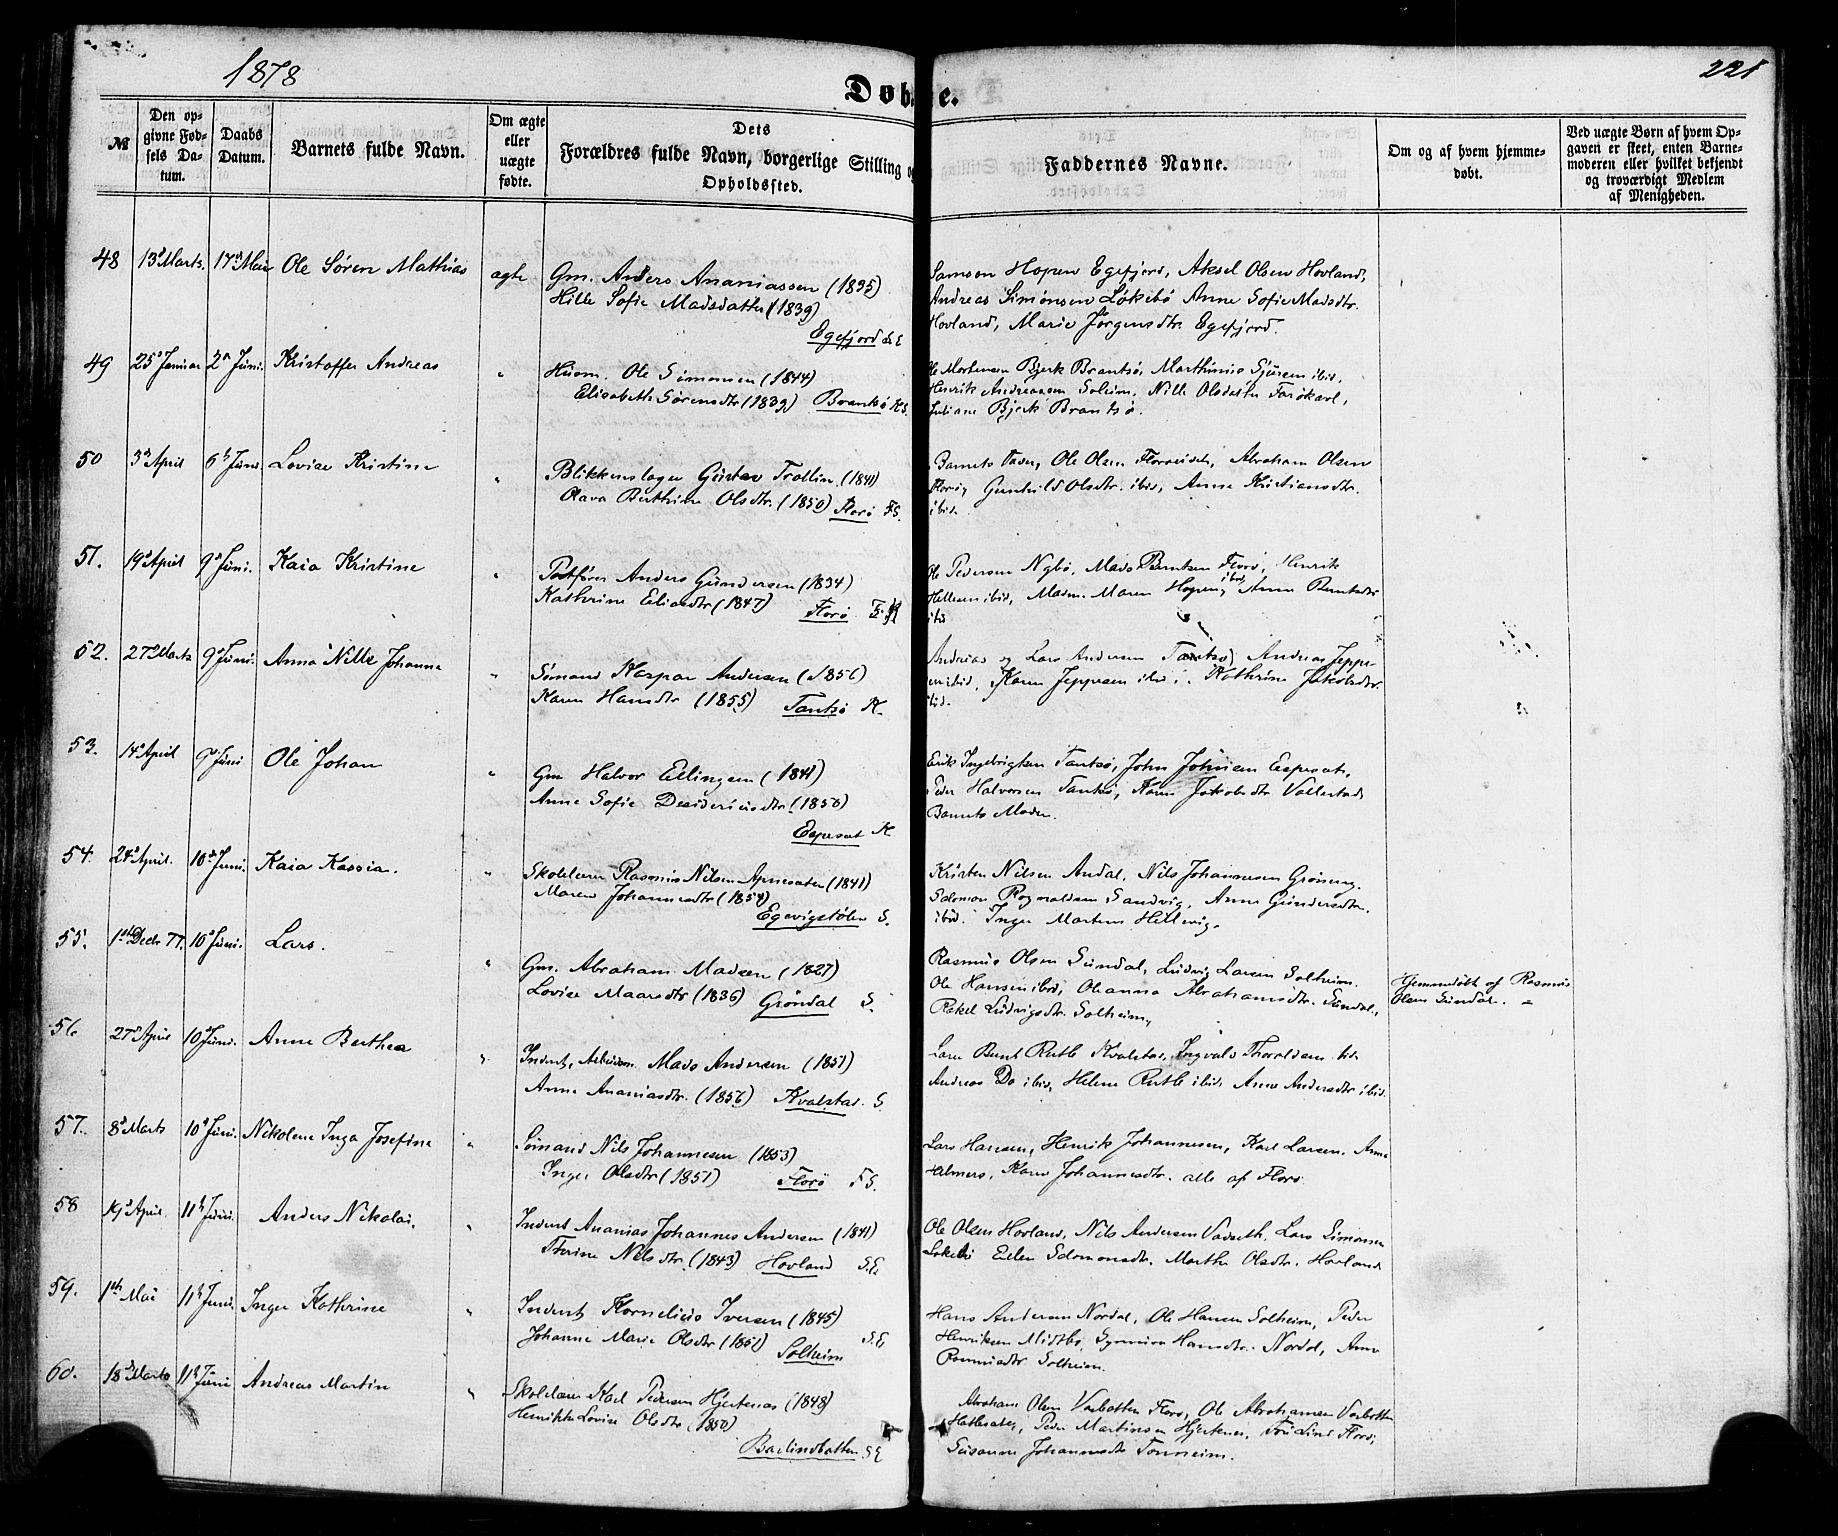 1878
221
Døbte.
№
Den opgivne Fødsels Datum.
Daabs Datum.
Barnets fulde Navn.
Om ægte eller uægte fødte.
Dets Forældres fulde Navn, borgerlige Stilling og Opholdssted.
Faddernes Navne.
Om og af hvem hjemmedøbt.
Ved uægte Børn af hvem Opgaven er skeet, enten Barnemoderen eller hvilket bekjendt og troværdigt Medlem af Menigheden.
48 13de Marts. 17de Mai Ole Søren Mathias ægte
Gm. Anders Ananiassen (1835)
Hille Sofie Madsdatter (1839)
Egefjord
Samson Hopen Egefjord, Aksel Olsen Hovland,
Andreas Simonsen Løkebø Anne Sofie Madsdtr.
Hovland, Marie Jørgensdtr. Egefjord.
49 25de Januar 2n Juni. Kristoffer Andreas "
Husm. Ole Simonsen (1844)
Elisabeth Sørensdtr (1839) Brantsø
Ole Mortensen Bjerk Brantsø, Marthinus ibid,
Henrik Andreassen Solheim, Nille Olsdatter
Juliane Bjerk Brantsø.
50 3die April 6te Juni Lovise Kristine "
Blikkenslager Gustav Trollin (1841)
Olava Berthine Olsdtr. (1850) Florø F.S.
Barnets Fader, Ole Olsen, Abraham Olsen
Florø, Gunhild Olsdtr. ibid, Anne Kristiansdtr.
ibid.
51. 19de April 9de Juni. Kaia Kristine "
Postfører Anders Gundersen (1834)
Kathrine Eliasdtr (1847) Florø
Ole Pedersen Nybø, Mads Berntsen Florø, Henrik
Hellesen ibid, Madm. Maren Hopen ibid, Anne Berntsdtr
ibid
52. 27de Marts 9de Juni. Anna Nille Johanna "
Sømand Kaspar Andersen (1856)
Karen Hansdtr (1855) Tansø K.
Andreas og Lars Andersen Tansø, Andreas Jeppesen
ibid, Karen Jeppesen ibid, Kathrine Jakobsdtr
ibid.
53. 14de April 9de Juni Ole Johan "
Gm Halvor Ellingsen (1841)
Anne Sofie Desideriusdtr (1850)
Espeset K.
Erik Ingebrigtsen Tansø, John Johnsen Espeset,
Peder Halvorsen Tansø, Karen Jakobsdtr Vallestad
Barnets Moder.
54. 24de April. 10de Juni. Kaia Kassia. "
Skolelærer Rasmus Nilsen (1841)
Maren Johannesdtr (1854)
Egevigstølen S.
Kristen Nilsen Andal, Nils Johannesen Grøneng.
Salomon Ragnaldsen Sandvig, Anne Gundersdtr.
ibid. Inger Martens Hellevig.
55. 1ste Decbr 77. 10de Juni. Lars. "
Gm. Abraham Madsen (1827)
Lovise Maansdtr (1836) Grøndal S.
Rasmus Olsen Sundal, Ludvig Larsen Solheim.
Ole Hansen ibid, Oleanna Abrahamsdtr. Sundal,
Rakel Ludvigsdtr. Solheim,
Hjemmedøbt af Rasmus
Olsen Sundal.
56 27de April 10de Juni. Anne Berthea "
Inderst, Arbeidsm. Mads Andersen (1851)
Anne Ananiasdtr. (1856) Kvalstad. S.
Lars Bernt Rutle Kvalstad, Ingvald Thoraldsen ibid
Andreas Do ibid, Helene Rutle ibid, Anne Andersdtr ibid.
57. 8de Marts 10de Juni. Nikoline Inga Josefine "
Sømand Nils Johannesen (1853)
Inger Olsdtr (1851) Florø F S.
Lars Hansen, Henrik Johannesen, Karl Larsen. Anne
Helmers, Karen Johannesdtr. alle af Florø
58 19de April 11te Juni. Anders Nikolai. "
Inderst Ananias Johannes Andersen (1841)
Thrine Nilsdtr. (1843) Hovland S.E.
Ole Olsen Hovland, Nils Andersen Vadseth. Lars Simonsen
Løkebø Ellen Salomonsdtr. Marthe Olsdtr. Hovland
59. 1ste Mai 11te Juni. Inger Kathrine "
Inderst Kornelius Iversen (1845)
Johanne Marie Olsdtr (1851) Solheim S.E
Hans Andersen Nordal, Ole Hansen Solheim, Peder
Henriksen Midtbø, Gunnild Hansdtr. Nordal, Anne
Rasmusdtr Solheim.
60. 18de Marts 11te Juni Andreas Martin "
Skolelærer Karl Pedersen Hjertenæs (1848)
Henrikke Lovise Olsdtr (1850)
Barlindbotten S E
Abraham Olsen Vasbotten Florø, Ole Abrahamsen Vasbotten
Hatleseter, Peder Martinsen Hjertenes, Fru Lind Florø,
Susanne Johannesdtr Tonheim.